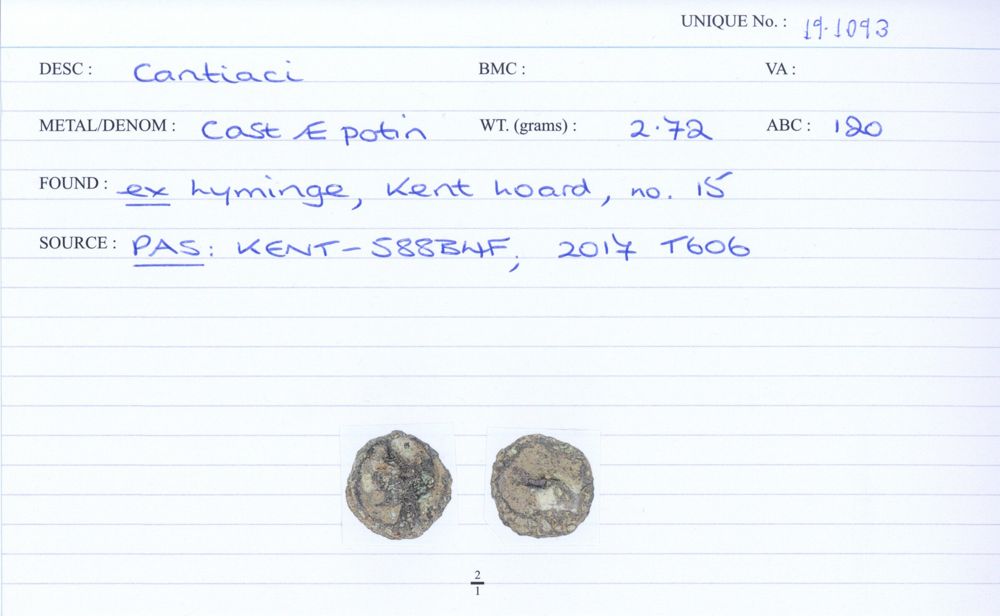 UNIQUE No. : 19.1093
DESC : Cantiaci BMC : VA :
METAL/DENOM : Cast Æ potin WT. (grams) : 2.72 ABC : 120
FOUND : ex hyminge, Kent hoard, no. 15
SOURCE : PAS: KENT-588B4F, 2017 T606
2
1